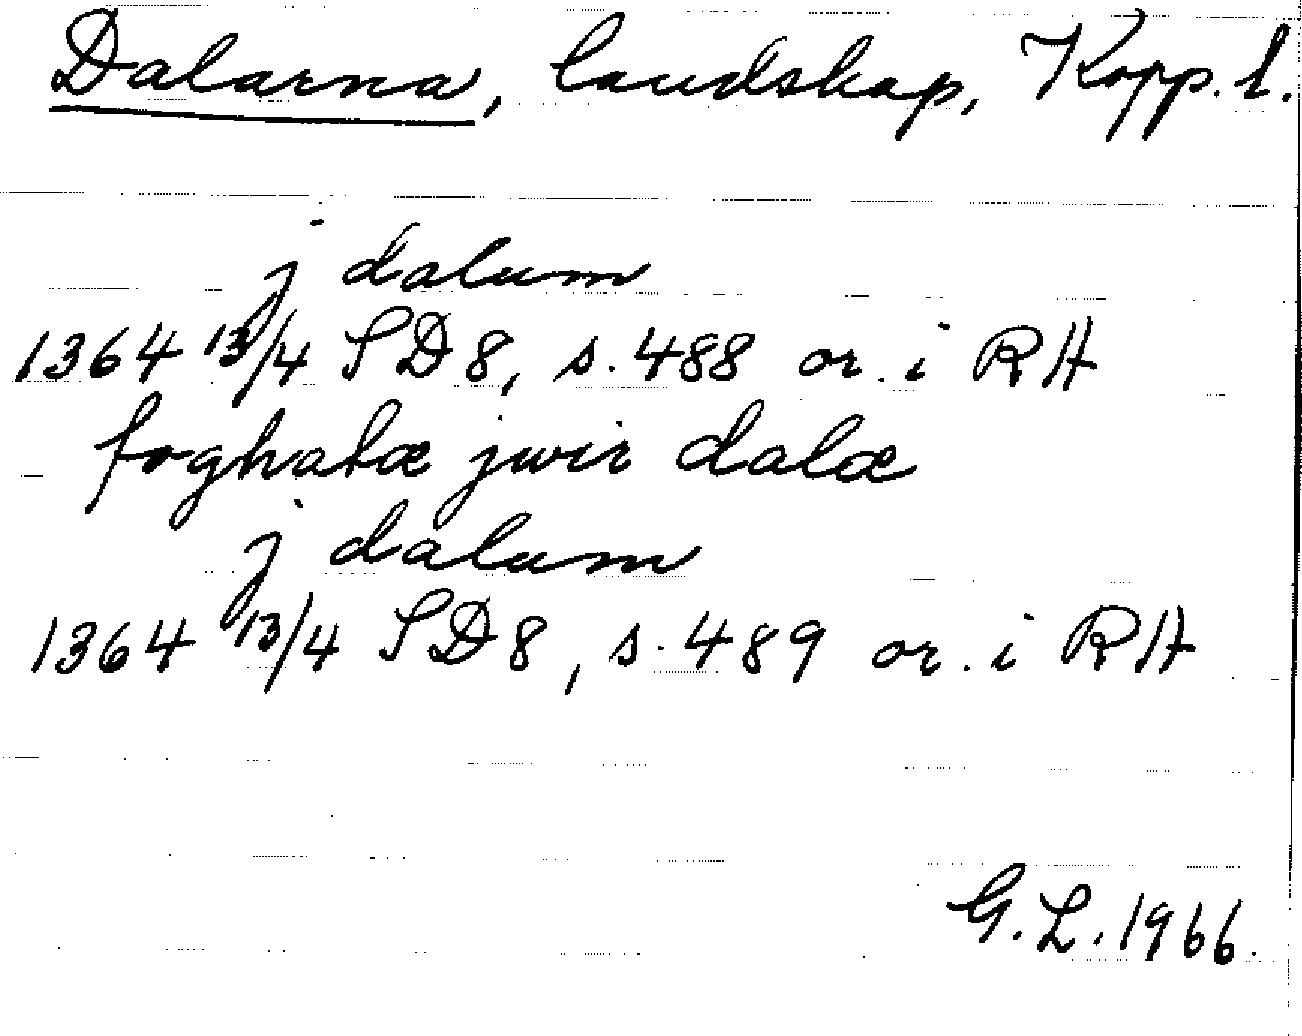 Dalarna, landskap, Kopp. l.
j dalum
1364 13/4 SD8, s. 488 or. i RH
foghatæ jwir dalæ
j dalum
1364 13/4 SD8, s. 489 or. i RH
G. L. 1966.